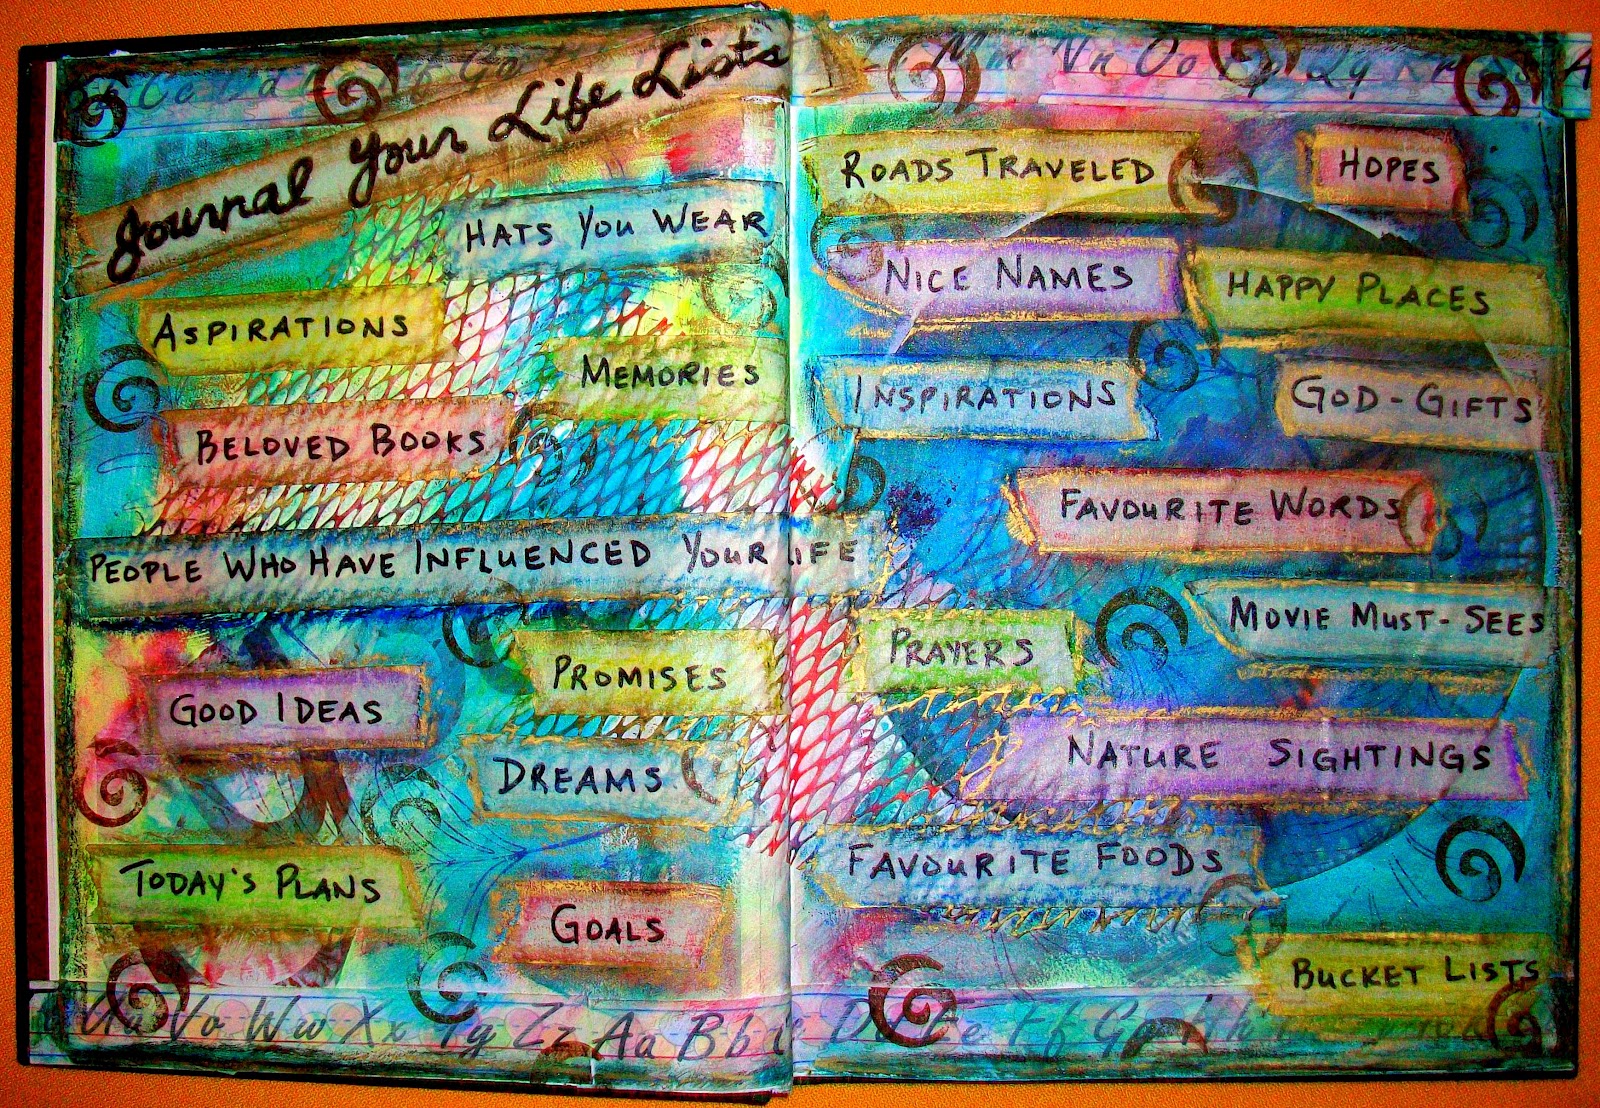 Journal Your Life Lists
Hats You Wear
Aspirations
Memories
Beloved Books
People Who Have Influenced Your Life
Promises
Good Ideas
Dreams
Today's Plans
Goals
Uu Vv Ww Xx Yy Zz Aa Bb
Mm Nn Oo Pp Qq Rr
Roads Traveled
Hopes
Nice Names
Happy Places
Inspirations
God-Gifts
Favourite Words
Movie Must-Sees
Prayers
Nature Sightings
Favourite Foods
Bucket Lists
Ee Ff Gg Hh